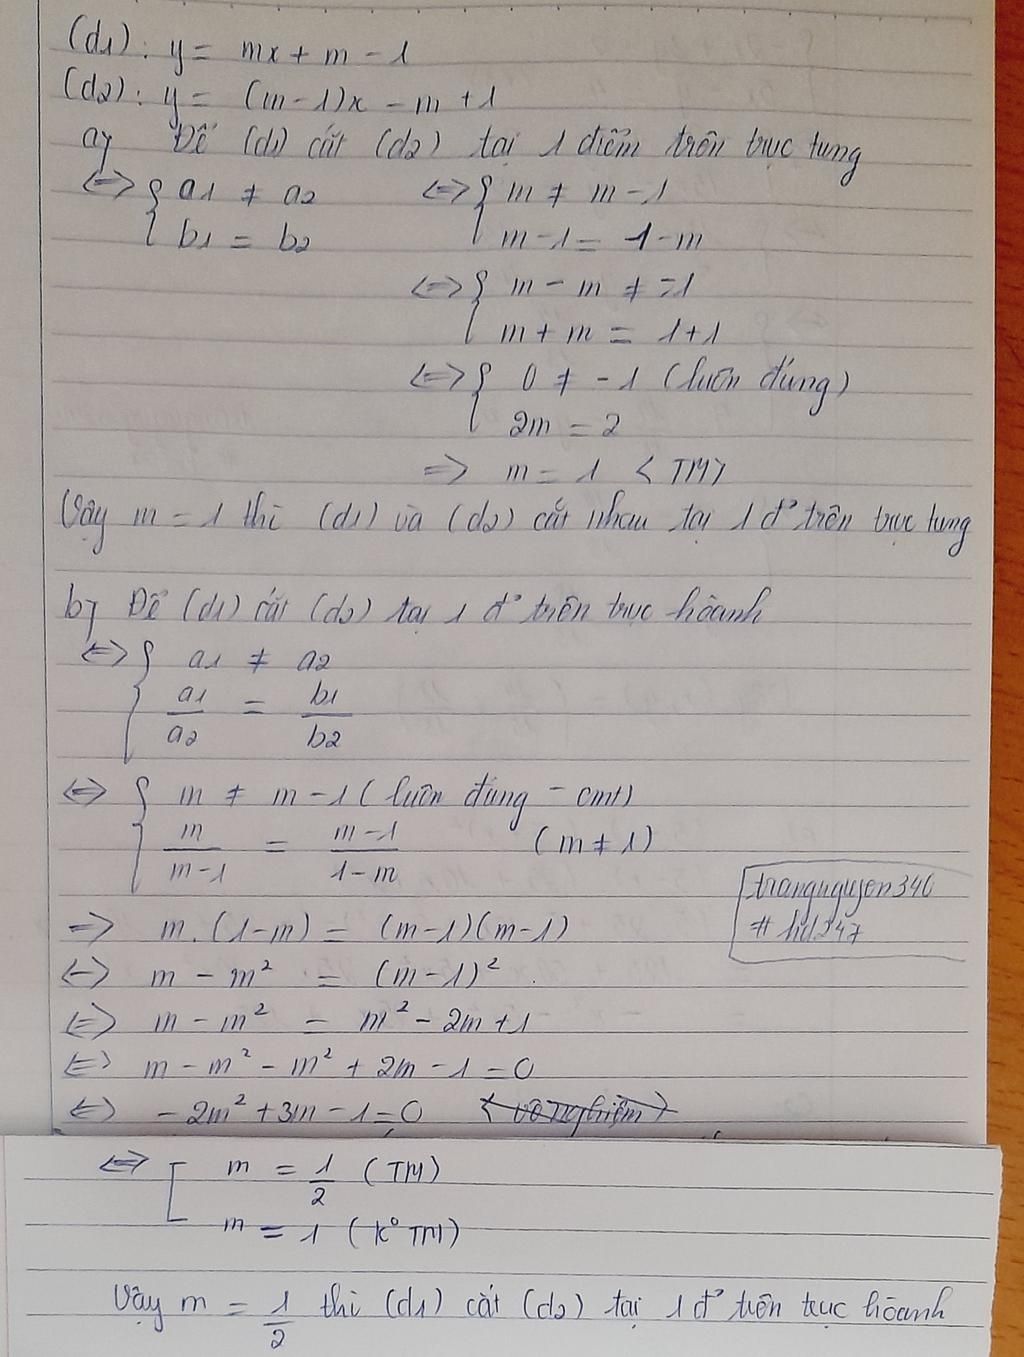 (d1): y = mx + m - 1
(d2): y = (m-1)x - m + 1
a, Để (d1) cắt (d2) tại 1 điểm trên trục tung
<=> { a1 ≠ a2 <=> { m ≠ m - 1
b1 = b2 m - 1 = 1 - m
<=> { m - m ≠ -1
m + m = 1 + 1
<=> { 0 ≠ -1 (luôn đúng)
2m = 2
=> m = 1 <TM>
Vậy m = 1 thì (d1) và (d2) cắt nhau tại 1 đ' trên trục tung
b, Để (d1) cắt (d2) tại 1 đ' trên trục hoành
<=> { a1 ≠ a2
a1/a2 = b1/b2
<=> { m ≠ m - 1 (luôn đúng - cmt)
m/(m-1) = (m-1)/(1-m) (m ≠ 1)
trangnguyen346
# hid247
=> m.(1-m) = (m-1)(m-1)
<=> m - m² = (m-1)²
<=> m - m² = m² - 2m + 1
<=> m - m² - m² + 2m - 1 = 0
<=> -2m² + 3m - 1 = 0 (vô nghiệm)
<=> [ m = 1/2 (TM)
m = 1 (k° TM)
Vậy m = 1/2 thì (d1) cắt (d2) tại 1 đ' trên trục hoành